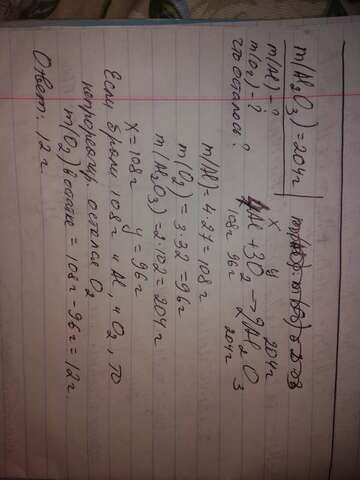 m(Al₂O₃) = 204г
m(Al) - ?
m(O₂) - ?
что осталось?
x y 204г
4Al + 3O₂ → 2Al₂O₃
108г 96г 204г
m(Al) = 4·27 = 108г
m(O₂) = 3·32 = 96г
m(Al₂O₃) = 2·102 = 204г
x = 108г y = 96г
Если брали 108г и Al, и O₂, то
непрореагир. остался O₂
m(O₂) в остатке = 108г - 96г = 12г.
Ответ: 12г.